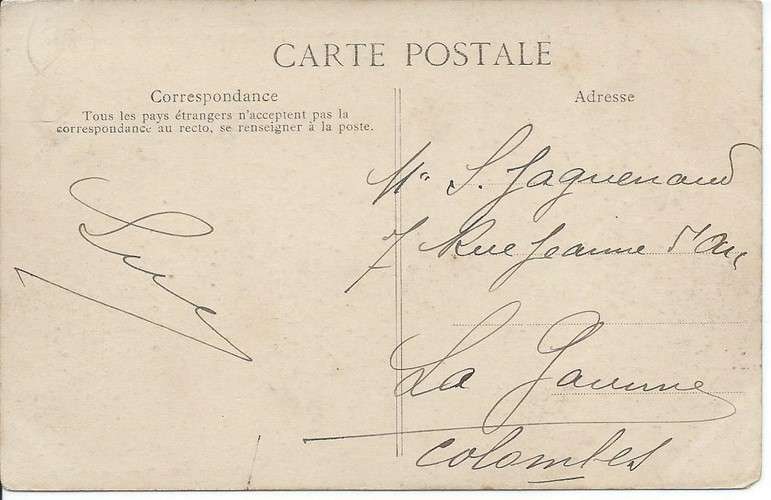 CARTE POSTALE
Correspondance
Tous les pays étrangers n'acceptent pas la
correspondance au recto, se renseigner à la poste.
Adresse
S. Jaguenaud
7 Rue Jeanne d'Arc
La Garenne
Colombes